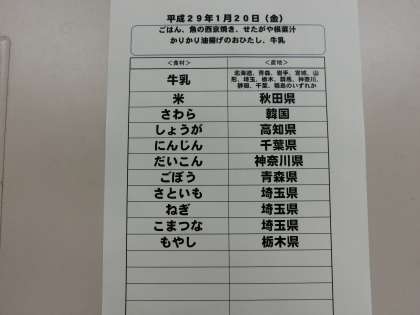 平成29年1月20日（金）
ごはん、魚の西京焼き、せたがや根菜汁
かりかり油揚げのおひたし、牛乳
＜食材＞ ＜産地＞
牛乳 北海道、青森、岩手、宮城、山
形、埼玉、栃木、群馬、神奈川、
静岡、千葉、福島のいずれか
米 秋田県
さわら 韓国
しょうが 高知県
にんじん 千葉県
だいこん 神奈川県
ごぼう 青森県
さといも 埼玉県
ねぎ 埼玉県
こまつな 埼玉県
もやし 栃木県